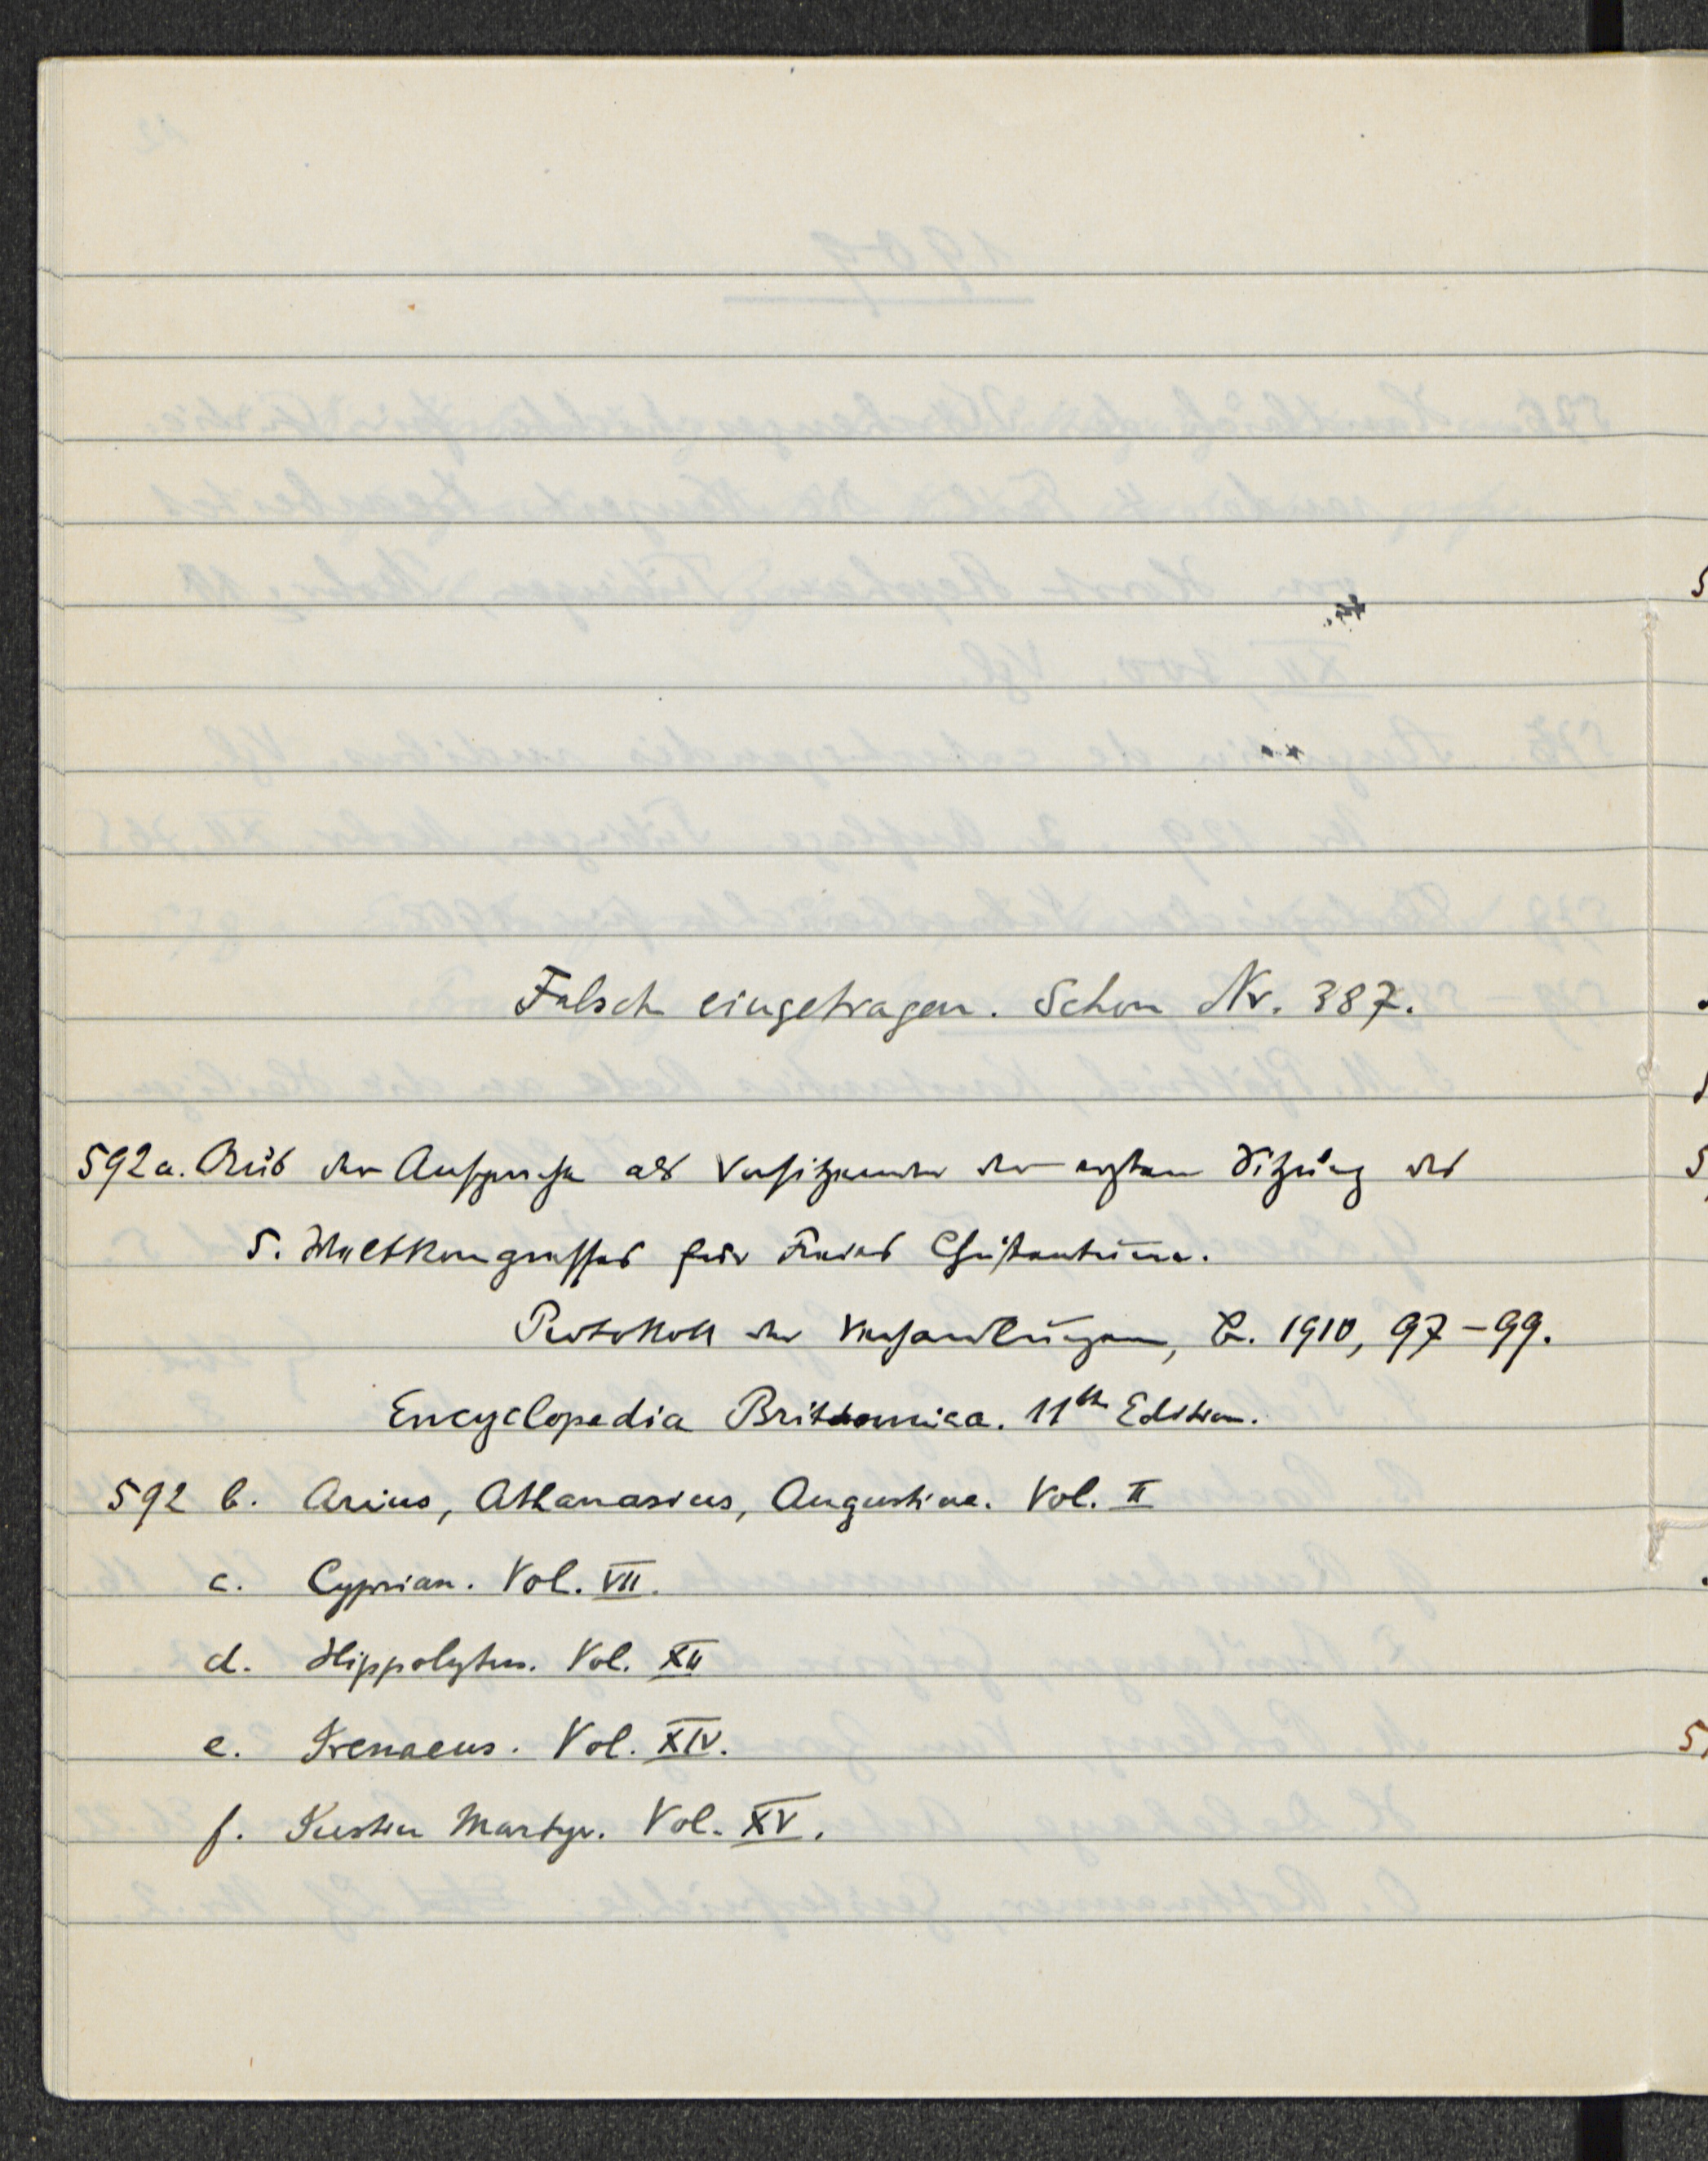 Falsch eingetragen. Schon Nr. 387.
592a. Aus der Ansprache als Vorsitzender der ersten Sitzung des
5. Weltkongresses für Freies Christentum.
Protokoll der Verhandlungen, B. 1910, 97-99.
Encyclopedia Brittannica. 11th Edition.
592 b. Arius, Athanasius, Augustine. Vol. II
c. Cyprian. Vol. VII.
d. Hippolytus. Vol. XII
e. Irenaeus. Vol. XIV.
f. Justin Martyr. Vol. XV.